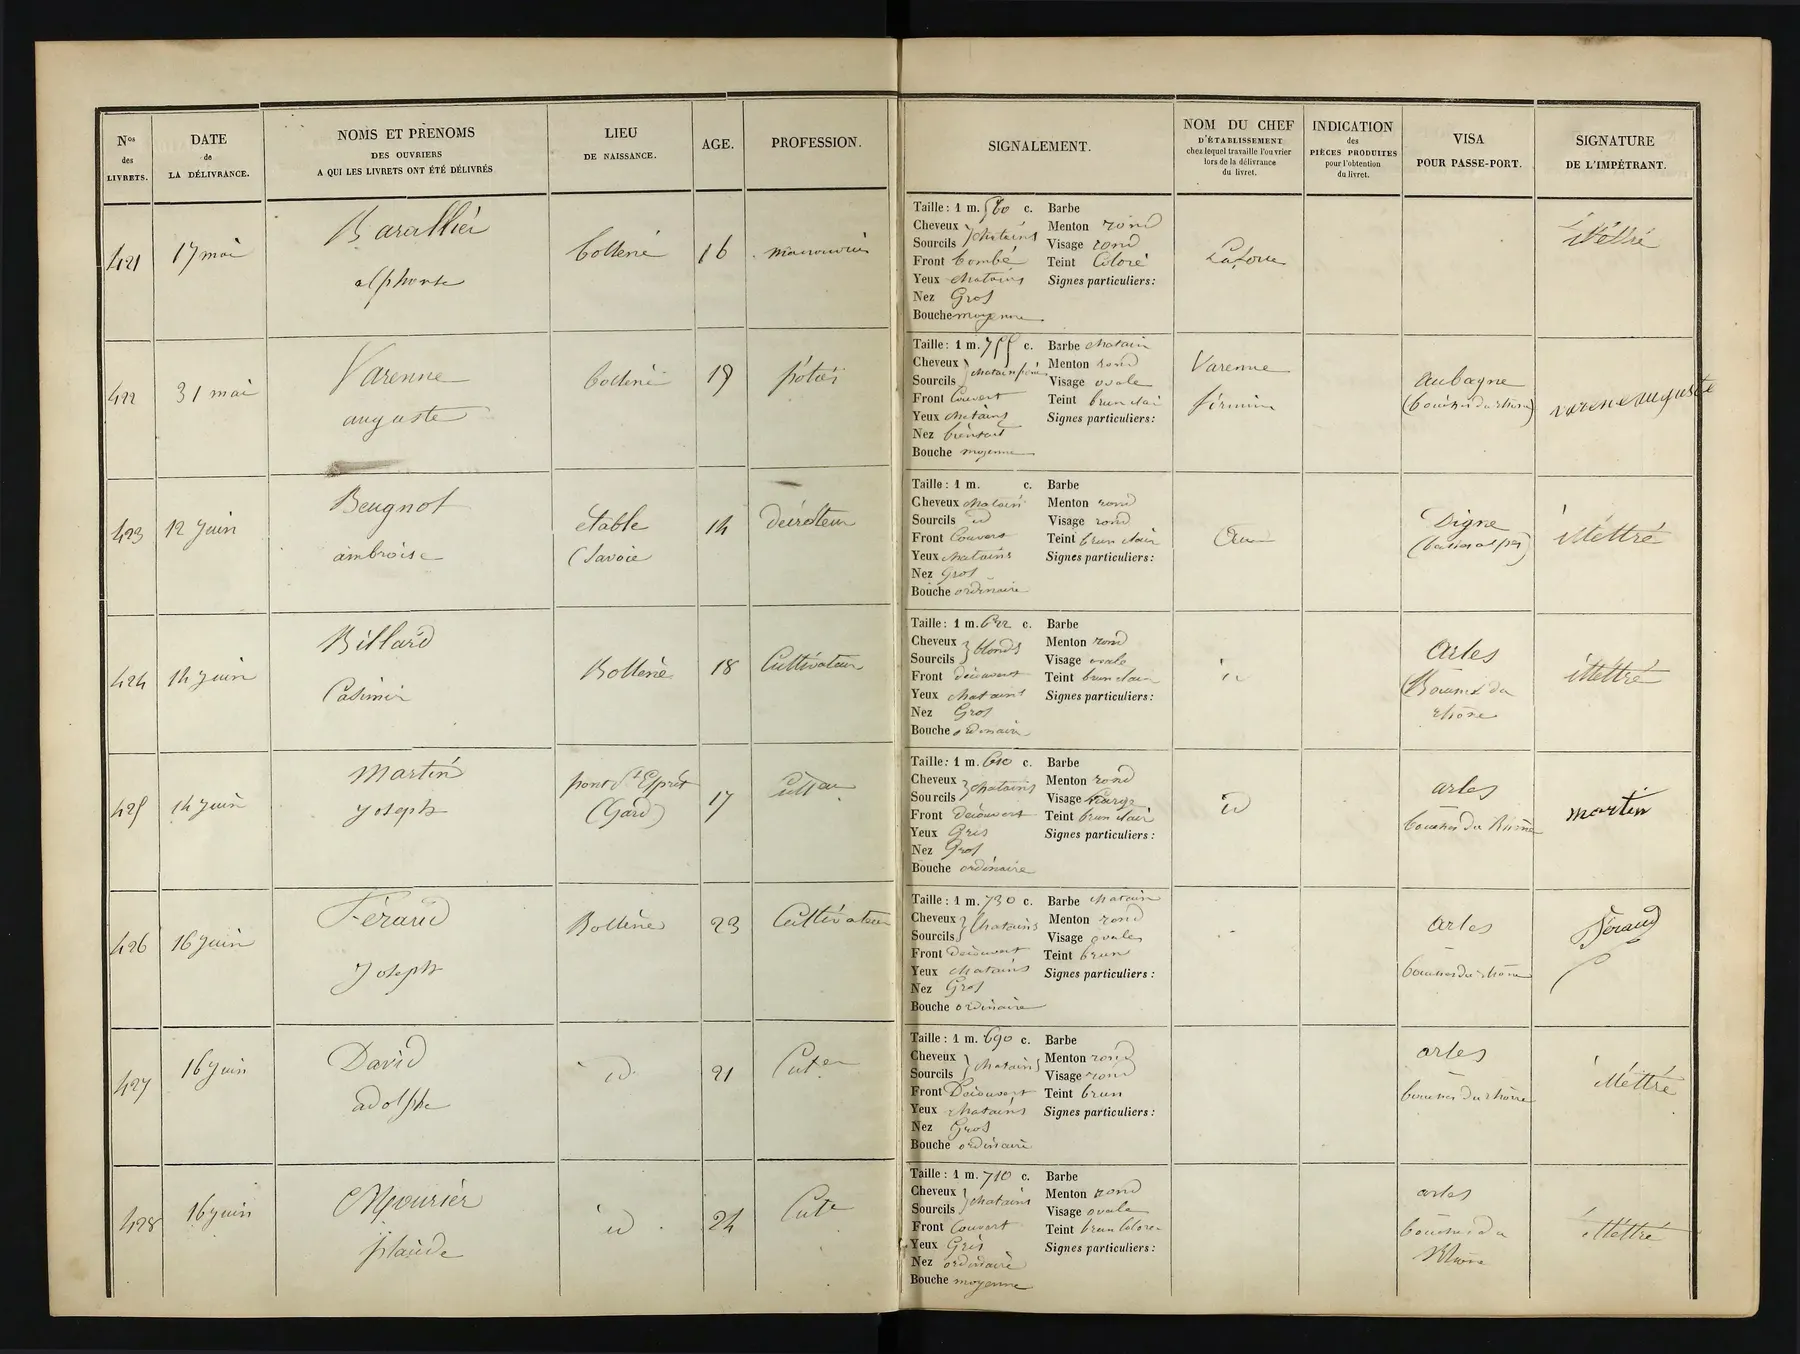 Nos des LIVRETS.
DATE de LA DÉLIVRANCE.
NOMS ET PRÉNOMS DES OUVRIERS A QUI LES LIVRETS ONT ÉTÉ DÉLIVRÉS
LIEU DE NAISSANCE.
AGE.
PROFESSION.
SIGNALEMENT.
NOM DU CHEF D'ÉTABLISSEMENT chez lequel travaille l'ouvrier lors de la délivrance du livret.
INDICATION des PIÈCES PRODUITES pour l'obtention du livret.
VISA POUR PASSE-PORT.
SIGNATURE DE L'IMPÉTRANT.
421 17 mai Barallier alphonse bollène 16
Taille : 1 m. 560 c. Barbe
Cheveux Sourcils chatains Menton rond
Visage rond
Front bombé Teint Coloré
Yeux chatains Signes particuliers :
Nez Gros
Bouche moyenne
illétré
422 31 mai Varenne auguste bollène 19 potier
Taille : 1 m. 755 c. Barbe chatain
Cheveux Sourcils chatain Menton rond
Visage ovale
Front Couvert Teint brun clair
Yeux chatains Signes particuliers :
Nez bienfait
Bouche moyenne
Varenne firmin
aubagne (bouches du rhône)
varene auguste
423 12 juin Beugnot ambroise étable (Savoie 14
Taille : 1 m. c. Barbe
Cheveux chatain Menton rond
Sourcils id Visage rond
Front Couvert Teint brun clair
Yeux chatains Signes particuliers :
Nez Gros
Bouche ordinaire
Digne (basses alpes)
illéttré
424 14 juin Billard Casimir Bollène 18 Cultivateur
Taille : 1 m. 622 c. Barbe
Cheveux Sourcils blonds Menton rond
Visage ovale
Front découvert Teint brun clair
Yeux chatains Signes particuliers :
Nez Gros
Bouche ordinaire
id
arles (Bouches du rhône
illéttré
425 14 juin Martin Joseph pont St Esprit (Gard) 17
Taille : 1 m. 610 c. Barbe
Cheveux Sourcils chatains Menton rond
Visage
Front découvert Teint brun clair
Yeux Gris Signes particuliers :
Nez Gros
Bouche ordinaire
id
arles bouches du Rhône
martin
426 16 juin Féraud Joseph Bollène 23 Cultivateur
Taille : 1 m. 730 c. Barbe chatain
Cheveux Sourcils Chatains Menton rond
Visage ovale
Front découvert Teint brun
Yeux chatains Signes particuliers :
Nez Gros
Bouche ordinaire
arles bouches du rhône
Féraud
427 16 juin David adolphe id 21
Taille : 1 m. 690 c. Barbe
Cheveux Sourcils chatains Menton rond
Visage rond
Front Découvert Teint brun
Yeux chatains Signes particuliers :
Nez Gros
Bouche ordinaire
arles bouches du rhône
illéttré
428 16 juin Mourier id 24
Taille : 1 m. 710 c. Barbe
Cheveux Sourcils chatains Menton rond
Visage ovale
Front Couvert Teint brun Coloré
Yeux Gris Signes particuliers :
Nez ordinaire
Bouche moyenne
arles bouches du Rhône
illéttré